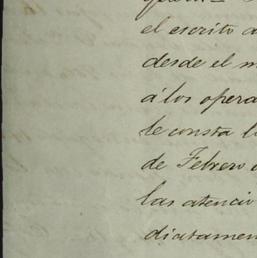 el escrito
desde el m
á los opera
le consta l
de Febrero
las atencio
diatamen